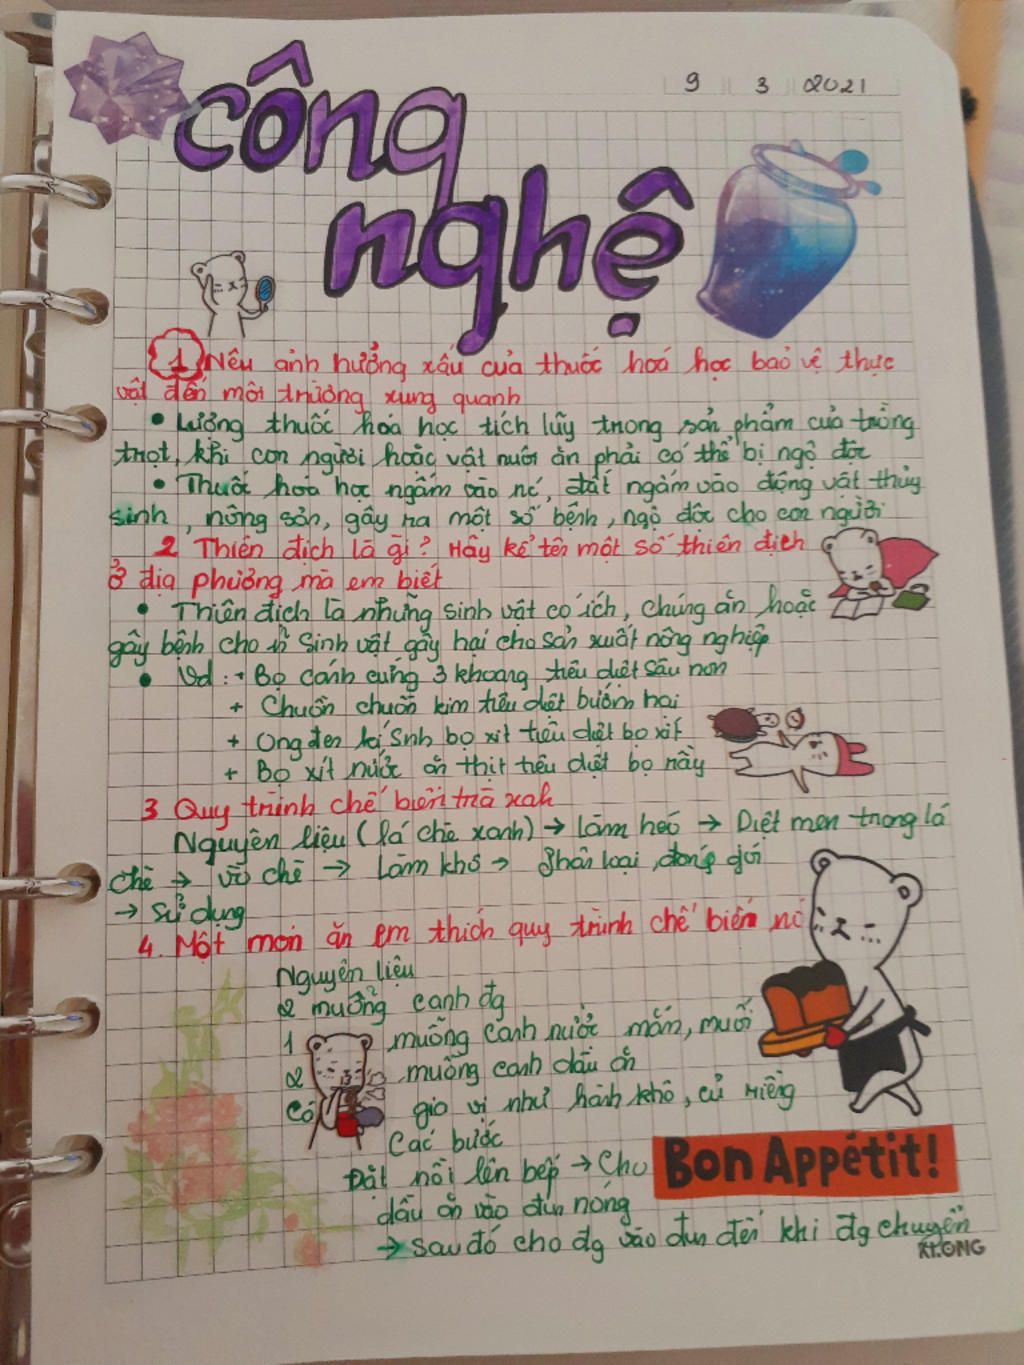 9 3 2021
công
nghệ
1 Nêu ảnh hưởng xấu của thuốc hoá học bảo vệ thực
vật đến môi trường xung quanh
• Lượng thuốc hóa học tích lũy trong sản phẩm của trồng
trọt, khi con người hoặc vật nuôi ăn phải có thể bị ngộ độc
• Thuốc hoá học ngấm vào nc, đất ngấm vào động vật thủy
sinh, nông sản, gây ra một số bệnh, ngộ độc cho con người
2 Thiên địch là gì? Hãy kể tên một số thiên địch
ở địa phương mà em biết
• Thiên địch là những sinh vật có ích, chúng ăn hoặc
gây bệnh cho sinh vật gây hại cho sản xuất nông nghiệp
• Vd: + Bọ cánh cứng 3 khoang tiêu diệt sâu non
+ Chuồn chuồn kim tiêu diệt bướm hại
+ Ong đen kí sinh bọ xít tiêu diệt bọ xít
+ Bọ xít nước ăn thịt tiêu diệt bọ rầy
3 Quy trình chế biến trà xah
Nguyên liệu (lá chè xanh) → Làm héo → Diệt men trong lá
chè → vò chè → Làm khô → Phân loại, đóng gói
→ sử dụng
4. Một món ăn em thích quy trình chế biến nó
Nguyên liệu
2 muỗng canh đg
1 muỗng canh nước mắm, muối
2 muỗng canh dầu ăn
Có gia vị như hành khô, củ riềng
Các bước
Đặt nồi lên bếp → Cho
Bon Appétit!
dầu ăn vào đun nóng
→ sau đó cho đg vào đun đến khi đg chuyển
KLONG